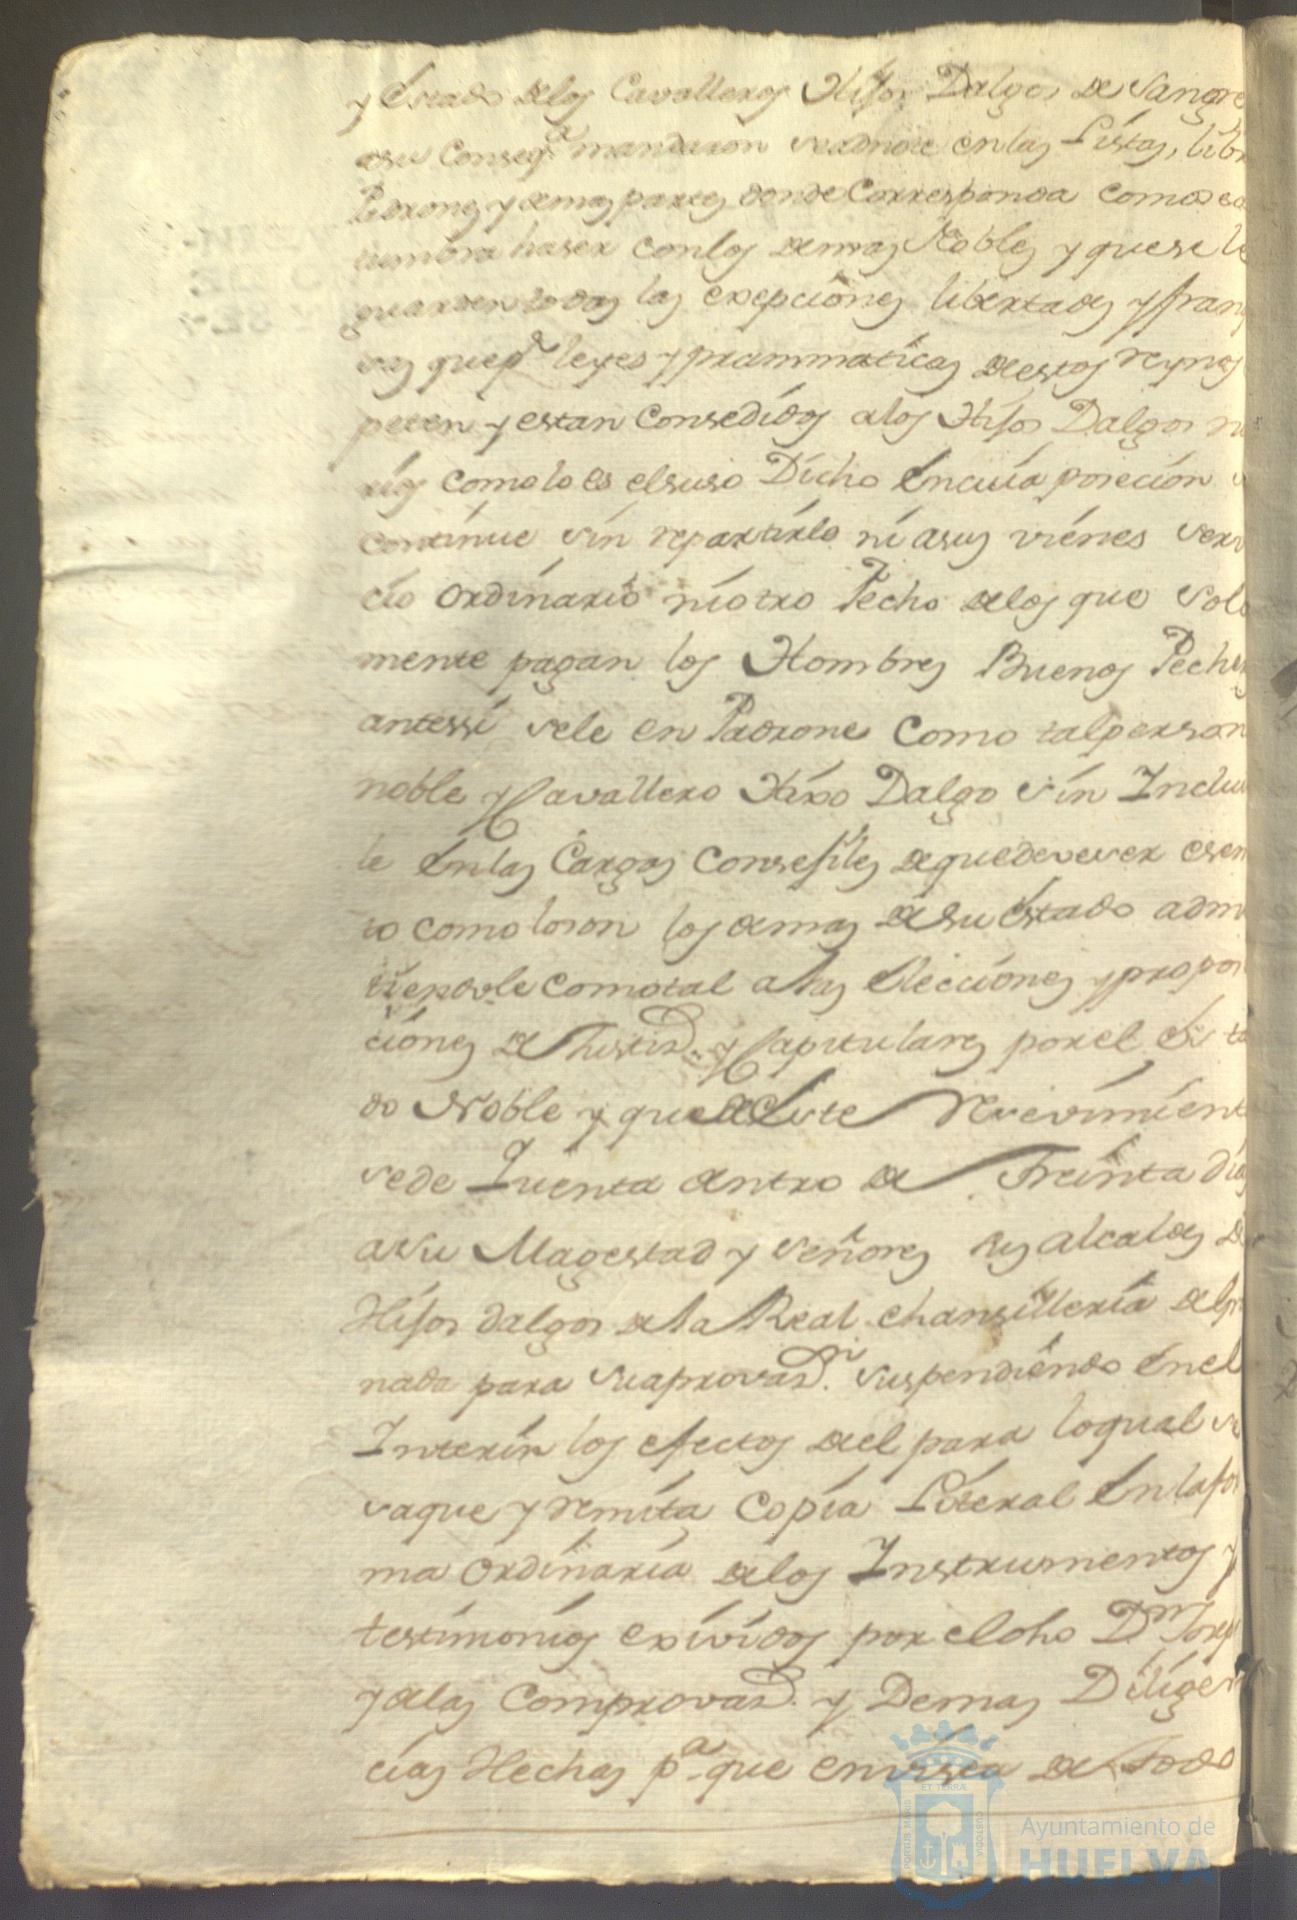 y Estado de los Cavalleros Hisos Dalgos de Sangre
asu Conseqª mandaron seadnote en las Listas, libr
Padrones y demas partes donde Corresponda como se a
tumbra haser con los demas Nobles y que se le
guarden todas las exepciones libertades y fran
zas que pr leyes y prammaticas de estos reynos
peten y estan Consedidos alos Hisos Dalgos n
rios como lo es el suso Dicho En cuia posecion
continue sin repartirle ni asus vienes serv
cio ordinario ni otro Pecho de los que Sola
mente pagan los Hombres Buenos Peche
antessi se le en Padrone Como tal person
noble y Cavallero Hixo Dalgo sin Inclui
le En las Cargas Consesiles de que deve ser esen
to como lo son los demas de su Estado admi
tiendole como tal alas Elecciones y propo
ciones de Justisª y Capitulares por el Esta
do Noble y que de Este Resevimient
se de Quenta dentro de Treinta dias
a Su Magestad y Señores sus alcaldes de
Hisos dalgos de la Real Chansilleria de Gra
nada para su aprovasn suspendiendo En el
Interin los efectos del para lo qual se
saque y remita Copia Literal En la for
ma ordinaria de los Instrumentos y
testimonios exividos por el dho Dn Josep
y de las Comprovasˢ y Demas Diligen
cias Hechas pª que en vista de todo
Ayuntamiento de
HUELVA
PORTUS MARIS
ET TERRÆ
CUSTODIA